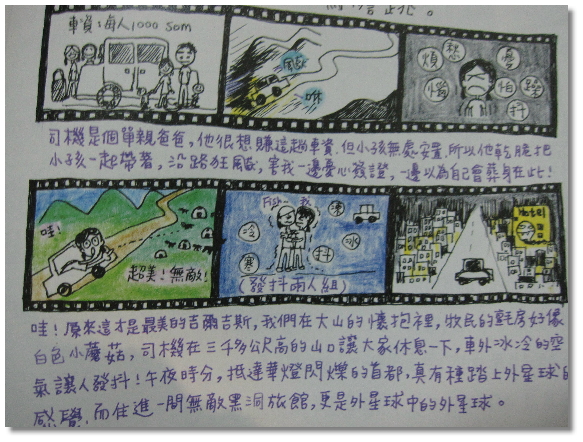 車資：每人1000 som
風歐
咻
煩
愁
憂
惱
怕
躁
抖
司機是個單親爸爸，他很想賺這趟車資，但小孩無處安置，所以他乾脆把
小孩一起帶著，沿路狂飆，害我一邊憂心簽證，一邊以為自己會葬身在此！
哇！
超美！無敵！
冷
凍
寒
冰
抖
(發抖兩人組)
Hotel
哇！原來這才是最美的吉爾吉斯，我們在大山的懷抱裡，牧民的氈房好像
白色小蘑菇，司機在三千多公尺高的山口讓大家休息一下，車外冰冷的空
氣讓人發抖！午夜時分，抵達華燈閃爍的首都，真有種踏上外星球的
感覺，而住進一間無敵黑洞旅館，更是外星球中的外星球。